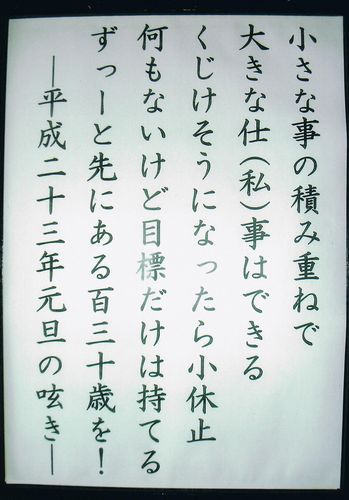 小さな事の積み重ねで
大きな仕(私)事はできる
くじけそうになったら小休止
何もないけど目標だけは持てる
ずっーと先にある百三十歳を!
―平成二十三年元旦の呟き―